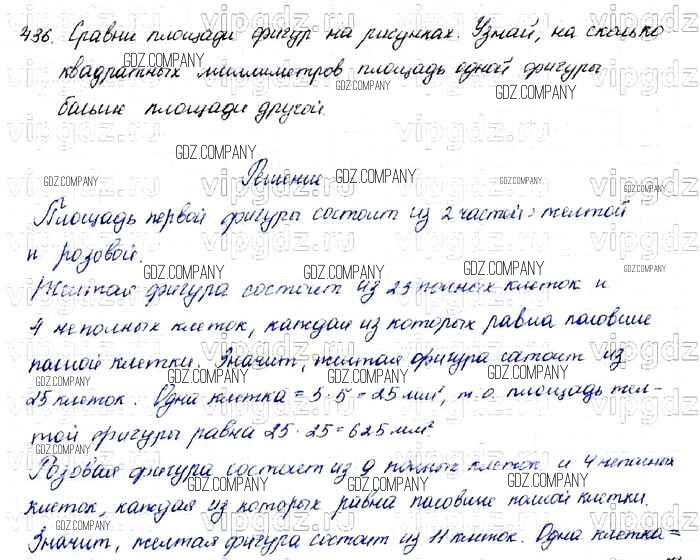 436. Сравни площади фигур на рисунках. Узнай, на сколько
квадратных миллиметров площадь одной фигуры
больше площади другой.
Решение
Площадь первой фигуры состоит из 2 частей: желтой
и розовой.
Желтая фигура состоит из 23 полных клеток и
4 неполных клеток, каждая из которых равна половине
полной клетки. Значит, желтая фигура состоит из
25 клеток. Одна клетка = 5 · 5 = 25 мм², т.о. площадь жел-
той фигуры равна 25 · 25 = 625 мм²
Розовая фигура состоит из 9 полных клеток и 4 неполных
клеток, каждая из которых равна половине полной клетки.
Значит, желтая фигура состоит из 11 клеток. Одна клетка =